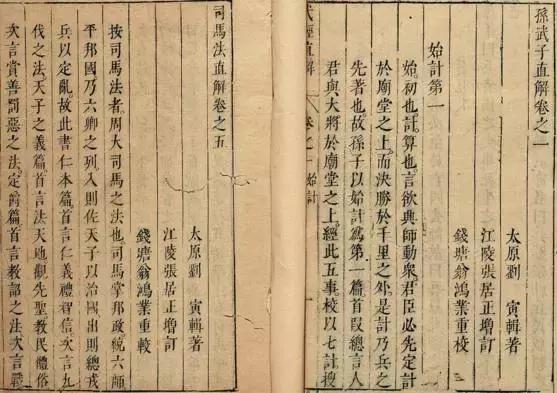 孫武子直解卷之一
太原劉寅輯著
江陵張居正增訂
錢塘翁鴻業重校
始計第一
始初也計算也言欲興師動衆君臣必先定計
於廟堂之上而決勝於千里之外是計乃兵之
先著也故孫子以始計爲第一篇首段總言人
君與大將於廟堂之上經此五事校以七計搜
武經直解
卷之一
始計
司馬法直解卷之五
太原劉寅輯著
江陵張居正增訂
錢塘翁鴻業重較
按司馬法者周大司馬之法也司馬掌邦政統六師
平邦國乃六卿之列入則佐天子以治國出則總戎
兵以定亂故此書仁本篇首言仁義禮智信次言九
伐之法天子之義篇首言法天地觀先聖教民體俗
次言賞善罰惡之法定爵篇首言教部之法次言戰